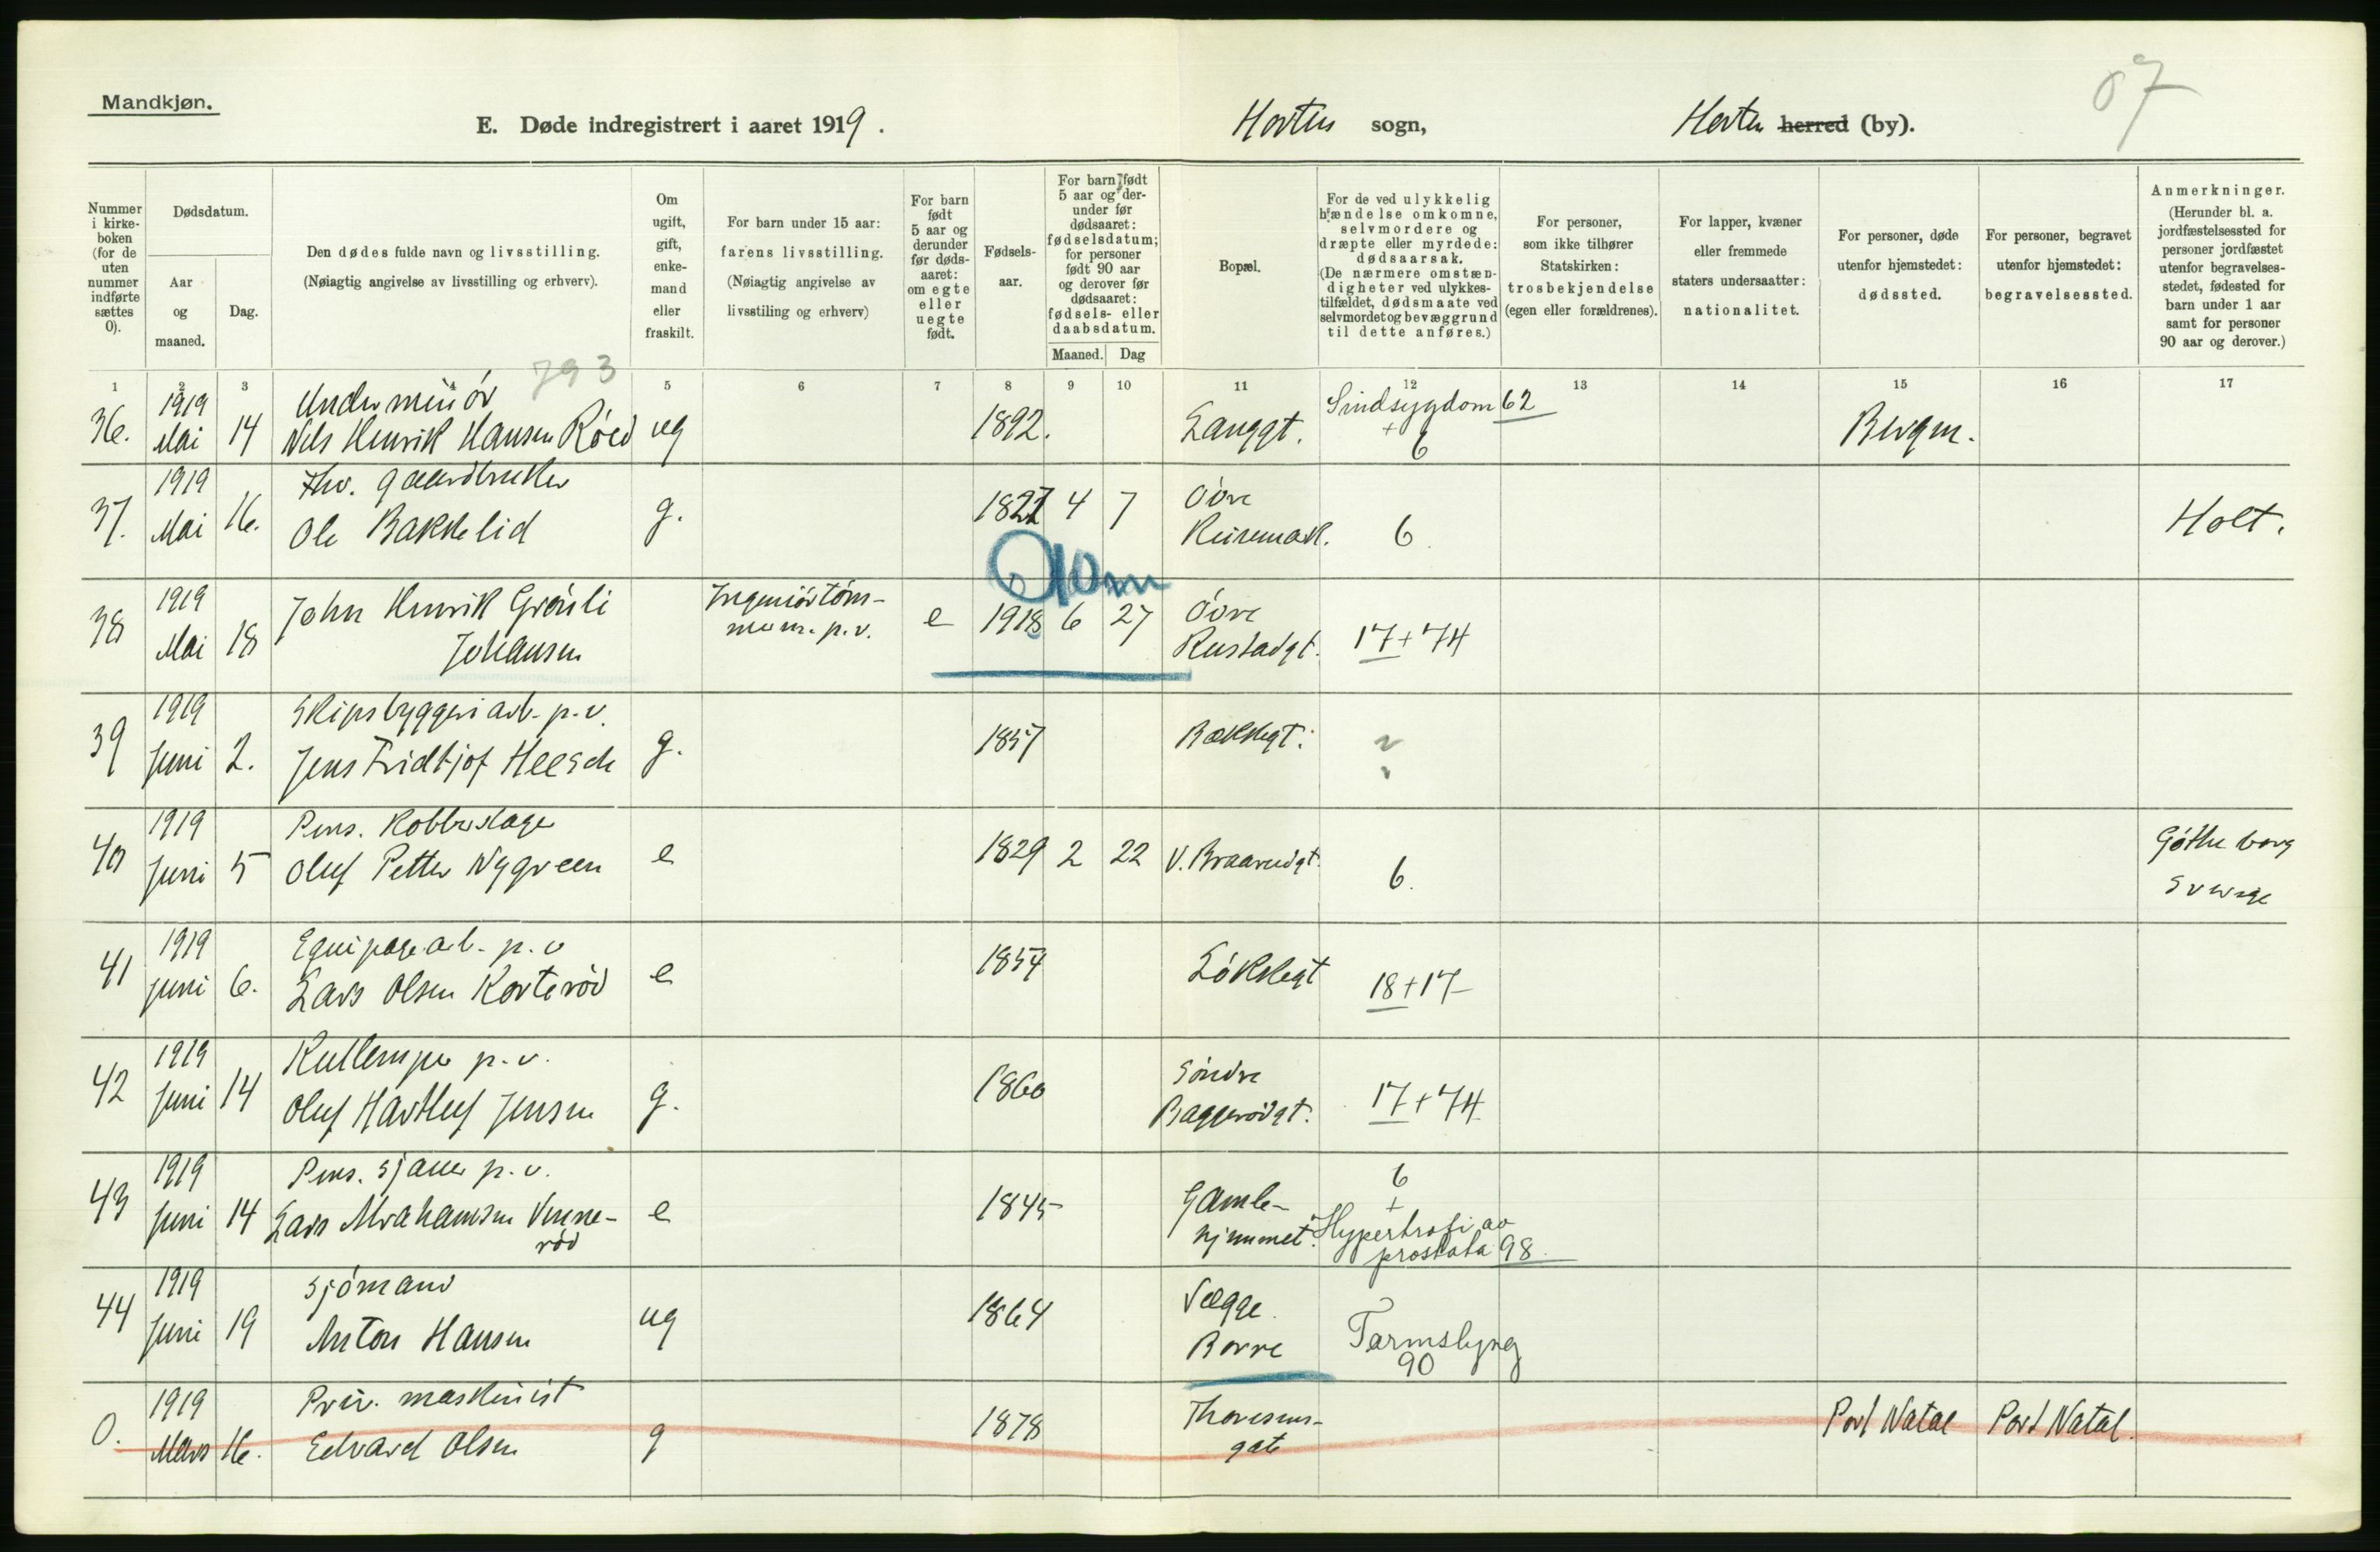 Mandkjøn.
07
E. Døde indregistrert i aaret 1919.
Horten sogn,
Horten herred (by).
Nummer i kirke-boken (for de uten nummer indførte sættes 0).
Dødsdatum.
Aar og maaned.
Dag.
Den dødes fulde navn og livsstilling.
(Nøiagtig angivelse av livsstilling og erhverv).
Om ugift, gift, enke-mand eller fraskilt.
For barn under 15 aar: farens livsstilling.
(Nøiagtig angivelse av livsstiling og erhverv)
For barn født 5 aar og derunder før døds-aaret: om egte eller uegte født.
Fødsels-aar.
For barn født 5 aar og der-under før dødsaaret: fødselsdatum; for personer født 90 aar og derover før dødsaaret: fødsels- eller daabsdatum.
Maaned. Dag
Bopæl.
For de ved ulykkelig hændelse omkomne, selvmordere og dræpte eller myrdede: dødsaarsak.
(De nærmere omstæn-digheter ved ulykkes-tilfældet, dødsmaate ved selvmordet og bevæggrund til dette anføres.)
For personer, som ikke tilhører Statskirken: trosbekjendelse (egen eller forældrenes).
For lapper, kvæner eller fremmede staters undersaatter: nationalitet.
For personer, døde utenfor hjemstedet: dødssted.
For personer, begravet utenfor hjemstedet: begravelsessted.
Anmerkninger.
(Herunder bl. a. jordfæstelsessted for personer jordfæstet utenfor begravelses-stedet, fødested for barn under 1 aar samt for personer 90 aar og derover.)
1 2 3 4 5 6 7 8 9 10 11 12 13 14 15 16 17
793
36. 1919 Mai 14 Underminør
Nils Henrik Hansen Röed ug 1892. Langgt. Sindsygdom 62
+
6 Bergen.
37. 1919 Mai 16. Fhv. gaardbruker
Ole Bakkelid g. 1827 4 7 Övre
Keisemark. 6. Holt.
38 1919 Mai 18 John Henrik Gröuli
Johansen Ingeniörtöm-
merm. p.v. e 1918 6 27 Övre
Rustadgt. 17+74
39 1919 Juni 2. Skipsbyggeriarb. p.v.
Jens Fridtjof Heesch g. 1857 Bakkegt. ?
40 1919 Juni 5 Pens. Kobberslager
Oluf Petter Nygreen e 1829 2 22 V. Braarudgt. 6. Götheborg
Sverige
41 1919 Juni 6. Equipagearb. p.v
Lars Olsen Korteröd e 1854 Lökkegt 18+17
42 1919 Juni 14 Kullemper p.v.
Oluf Hartluf Jensen g. 1860 Söndre
Baggerödgt. 17+74
43 1919 Juni 14 Pens. sjauer p.v.
Lars Abrahamsen Venne-
röd e 1845 Gamle-
hjemmet. 6
+
Hypertrofi av
prostata 98.
44 1919 Juni 19 Sjömand
Anton Hansen ug 1864 Vegge
Borre Tarmslyng
90
0. 1919 Mars 16. Priv. maskinist
Edvard Olsen g 1878 Thoresens-
gate Port Natal Port Natal.